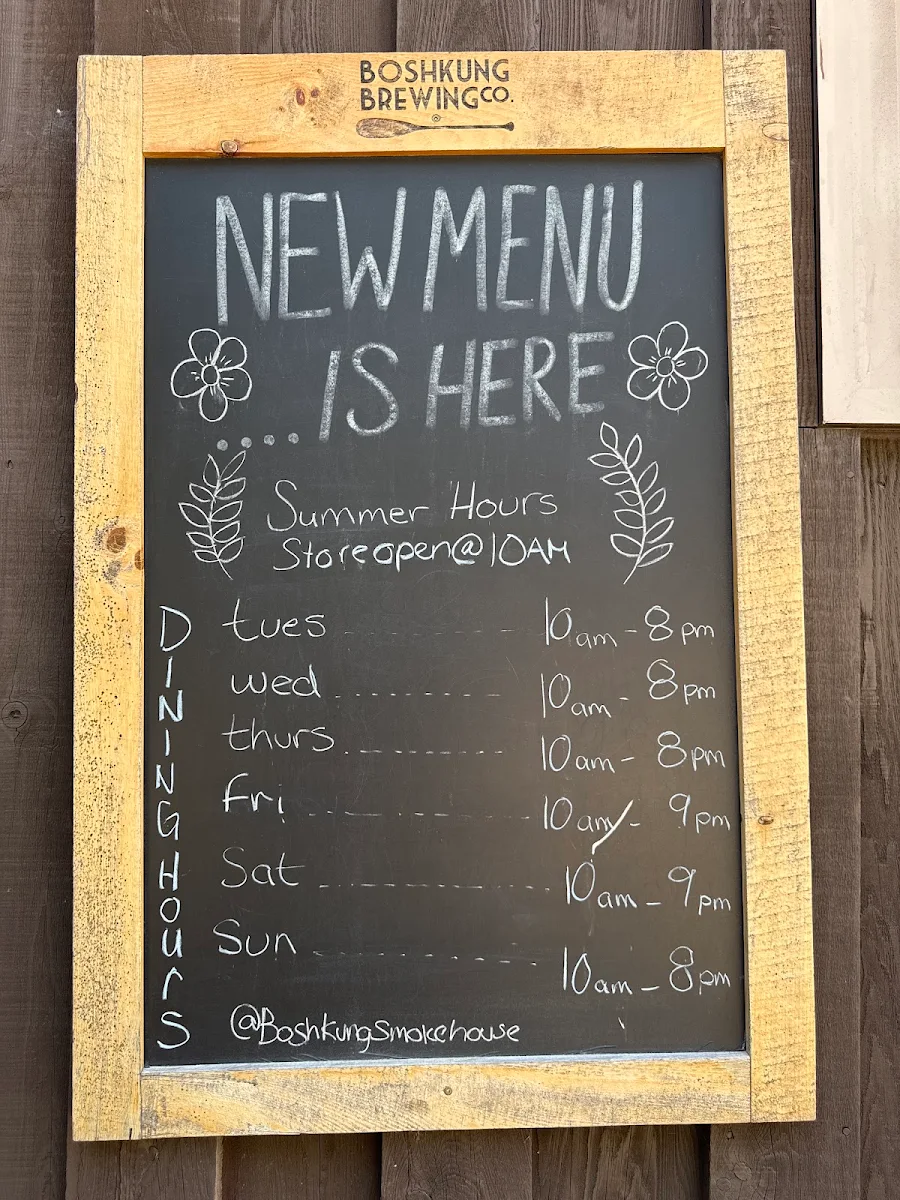 BOSHKUNG
BREWING CO.
NEW MENU
....IS HERE
Summer Hours
Store open @ 10AM
DINING HOUrS
tues 10am - 8pm
wed 10am - 8pm
thurs 10am - 8pm
fri 10am - 9pm
Sat 10am - 9pm
Sun 10am - 8pm
@Boshkungsmokehouse